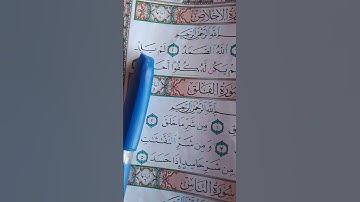 سورة الإخلاص
بسم الله الرحمن الرحيم
الله الصمد ٢ لم يلد
لم يكن له كفوا أحد
سورة الفلق
بسم الله الرحمن الرحيم
١ من شر ما خلق ٢
٣ ومن شر النفّٰثٰت
٤ من شر حاسد إذا حسد ٥
سورة الناس